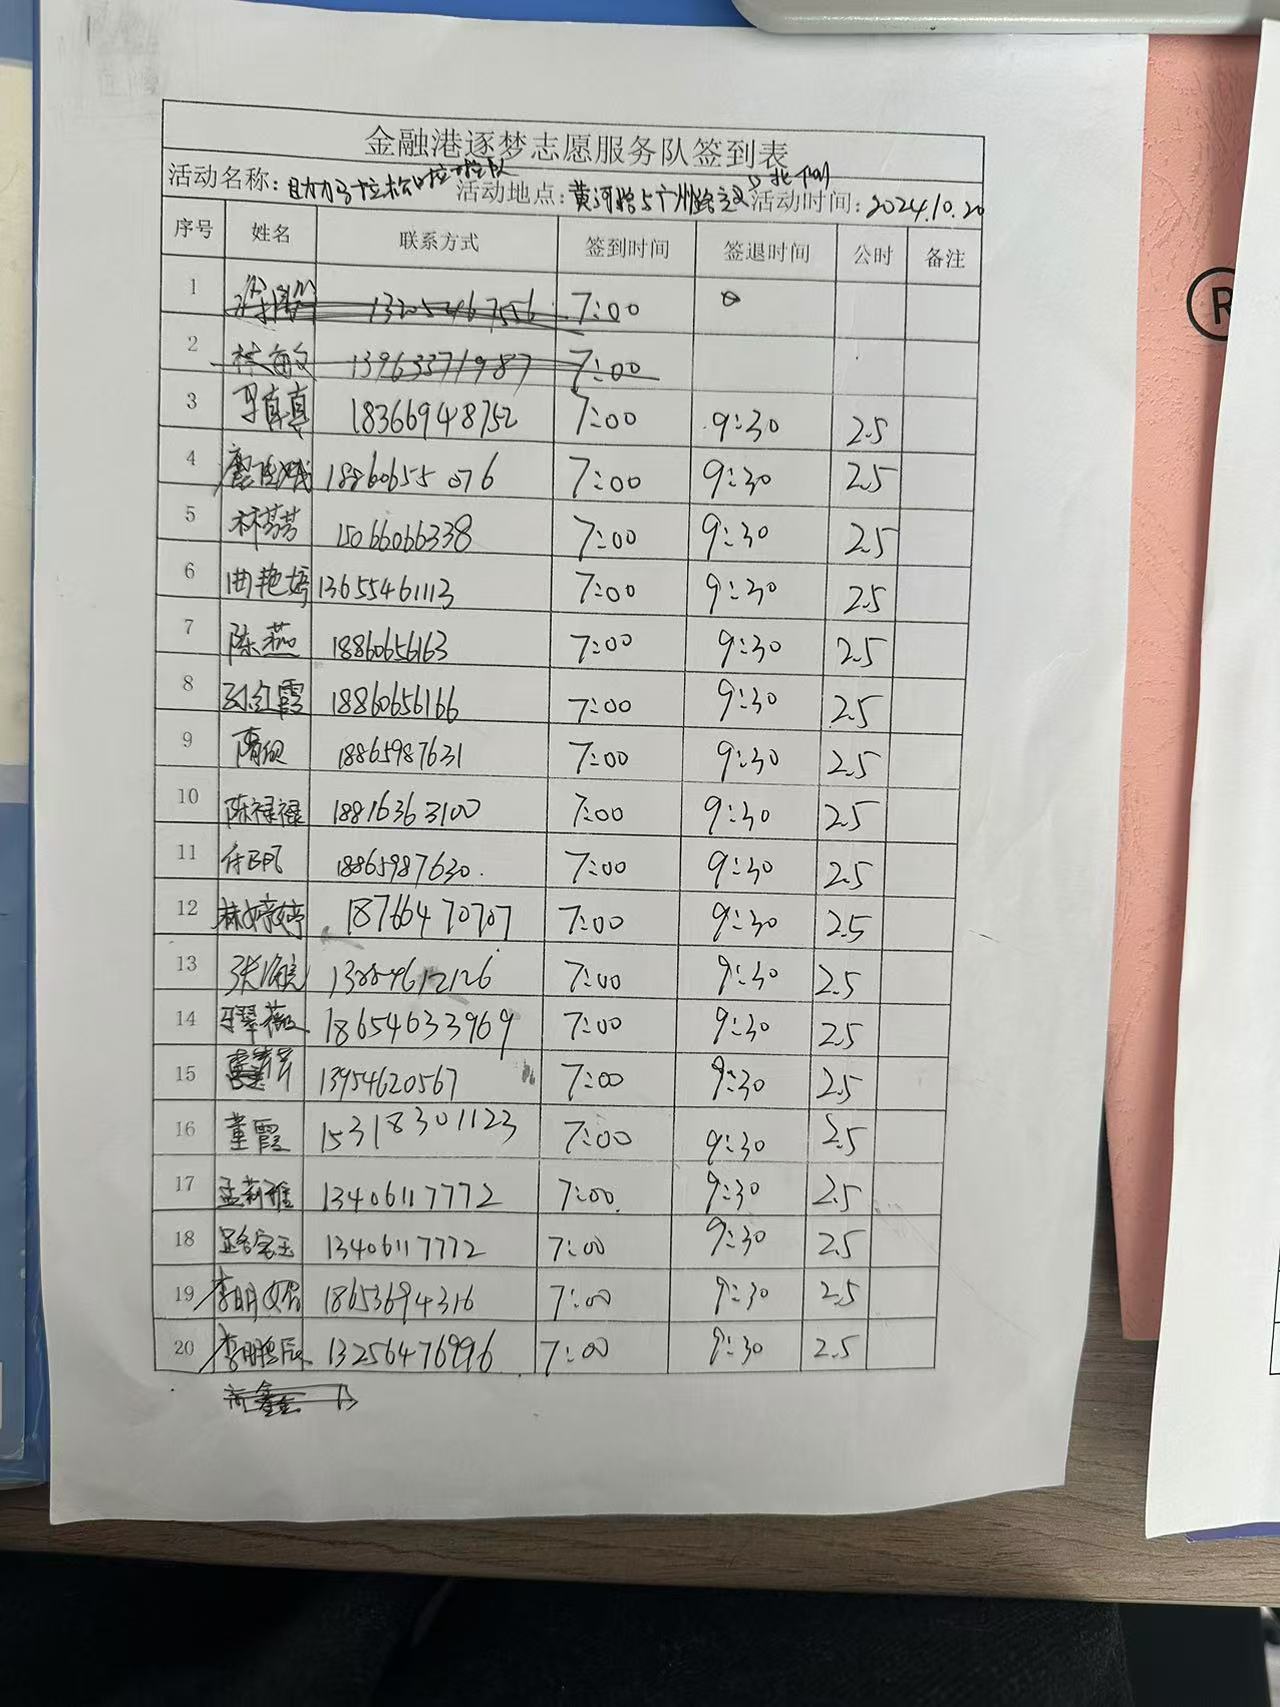 金融港逐梦志愿服务队签到表
活动名称: 助力马拉松啦啦队 活动地点: 黄河路与广州路交叉口北侧 活动时间: 2024.10.20
序号 姓名 联系方式 签到时间 签退时间 公时 备注
1 13205467556 7:00
2 林敏 13963371987 7:00
3 马真真 18366948752 7:00 9:30 2.5
4 18860655076 7:00 9:30 2.5
5 林芳芳 15066066338 7:00 9:30 2.5
6 曲艳婷 13655461113 7:00 9:30 2.5
7 陈燕 18860656163 7:00 9:30 2.5
8 孙红霞 18860656166 7:00 9:30 2.5
9 18865987631 7:00 9:30 2.5
10 陈禄禄 18816363100 7:00 9:30 2.5
11 18865987630. 7:00 9:30 2.5
12 林婷婷 18766470707 7:00 9:30 2.5
13 7:00 9:30 2.5
14 翠薇 18654633969 7:00 9:30 2.5
15 13954620567 7:00 9:30 2.5
16 董霞 15318301123 7:00 9:30 2.5
17 孟莉雅 13406117772 7:00 9:30 2.5
18 路宝玉 13406117772 7:00 9:30 2.5
19 李明 18653694316 7:00 9:30 2.5
20 李鹏辰 13256476996 7:00 9:30 2.5
鑫